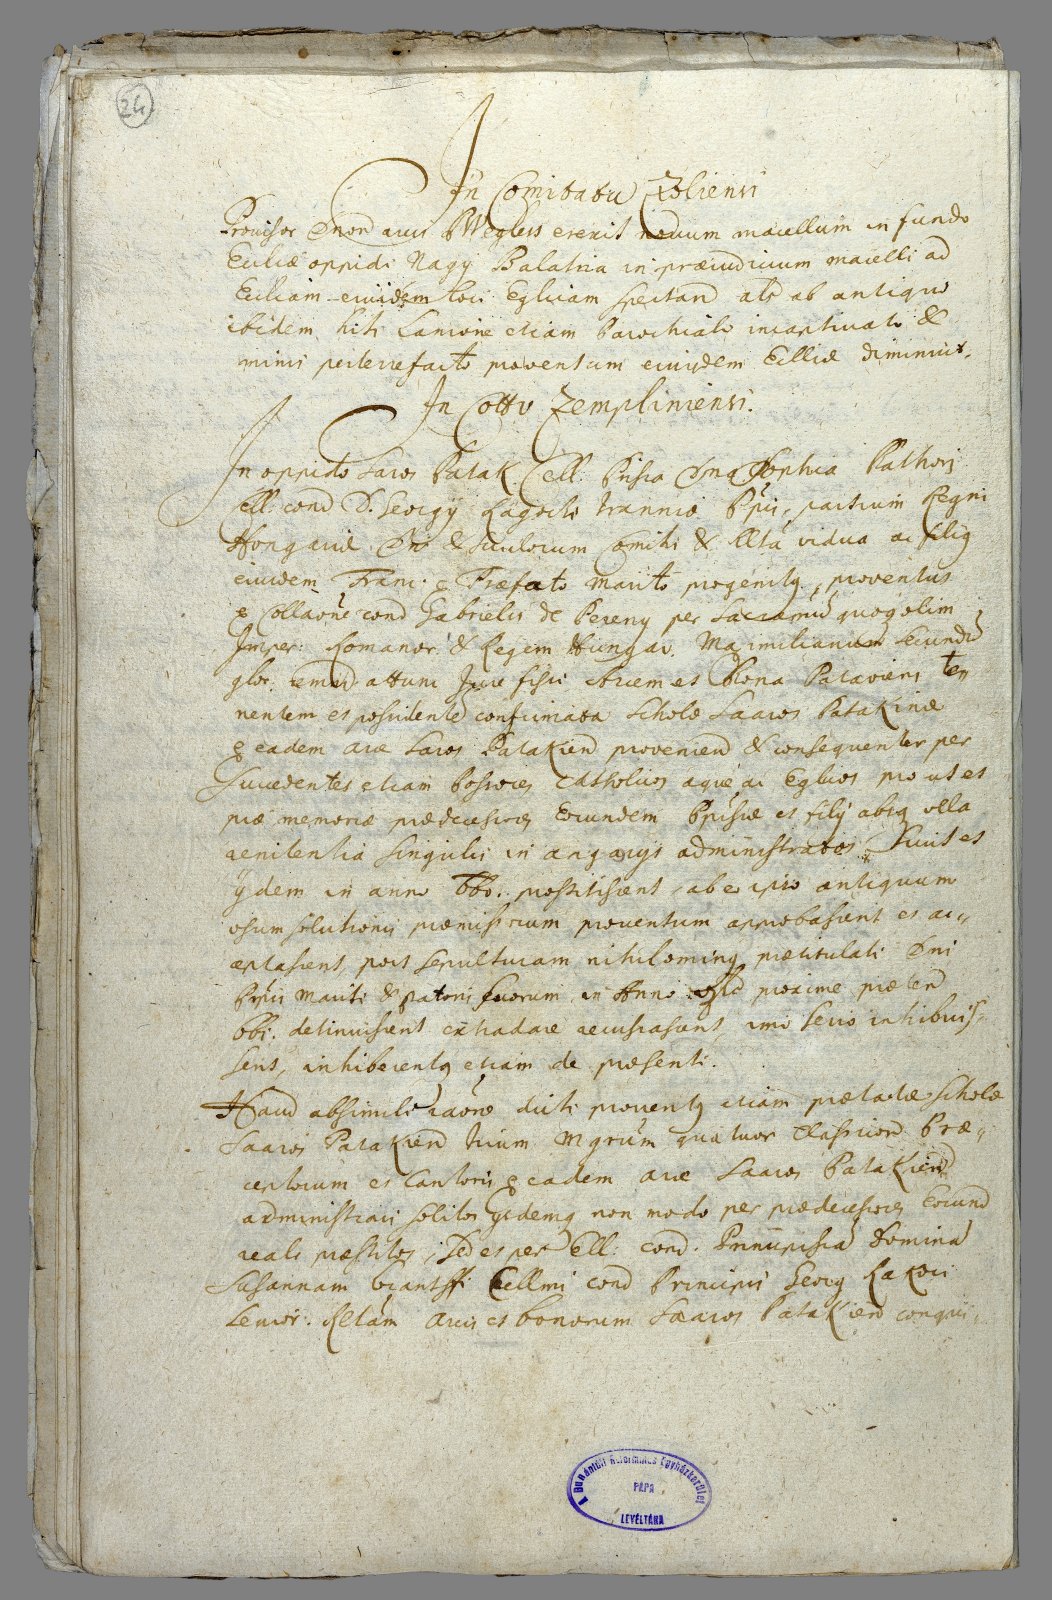 24.
In Comitatu Zoliensi
Provisor Dnor arcis Vegless erexit novum macellum in fundo
Eccliae oppidi Nagy Szalatna in praeiudicium macelli ad
Eccliam eiusdem loci Eglicam spectand ab antiquo
ibidem siti Lanione etiam Parochiali incaptivato &
minis perterrefacto proventum eiusdem Eccliae diminuit.
In Cottu Zempliniensi.
In oppido Saros Patak Cell. Pnissa Dna Sophia Bathori
Cell: cond D. Georgy Ragoczi Tranniae Ppis, partium Regni
Hongariae Dni & Siculorum Comitis & Relta vidua ac filius
eiusdem Franc. e Praefato marito progenitus, proventus
e Collaone cond Gabrielis de Pereny per Sacramq quoqolim
Imper: Romanor. & Regem Hungar. Maximilianum Secundu
glor. remed. attunc Jure fisci Arcem et bona Pataviens te=
nentem et possidente confirmata Scholae Saaros Patakinae
e eadem arce Saros Patakiend proveniend & consequenter per
Succedentes etiam Possores Catholicos aque ac Eglicos prout et
piae memoriae praedecessores Eorundem Ppissae et filij absq ulla
renitentia singulis in angarijs administratos, Licut et
ijdem in anno 660. praestitissent, ab eo ipso antiquum
usum solutionis praemissorum proventum approbassent et ac=
ceptassent, post sepulturam nihilominus praetitulati Dni
Ppis Mariti & patoris suorum in Anno proxime praeterd
661. detinuissent extradare recusassent, imo serio inhibuis=
sent, inhiberentq etiam de praesenti.
Haud absimili raone dicti proventq etiam praelatae Scholae
Saaros Patakiend trium Mgrum quatuor Classicor Prae=
ceptorum et Cantoris e eadem arce Saaros Patakiend
administrari solitos ijsdemq non modo per praedecessores Eorund
reali praestitos, Sed et per Cell: cond. Principissa Domina
Susannam Lorantffi Cellmi cond Principis Georg Rakoci
Senior: Reltam Arcis et bonorum Saaros Patakiend conqui=
A Dunántúli Református Egyházkerület
PÁPA
LEVÉLTÁRA